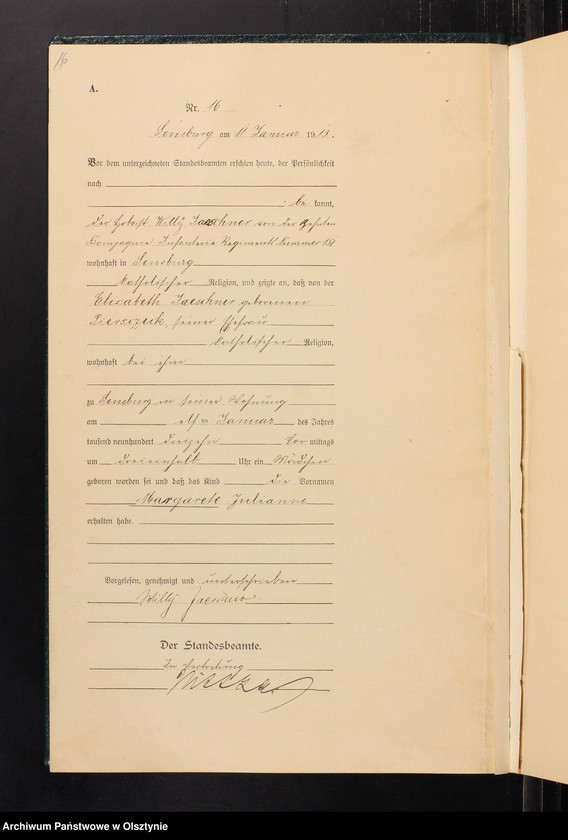 16
A.
Nr. 16
Sensburg am 11 Januar 1913.
Vor dem unterzeichneten Standesbeamten erschien heute, der Persönlichkeit
nach
be kannt,
der Hoboist Willy Jaeschner von der zehnten
Kompagnie Infanterie Regiments Nummer
wohnhaft in Sensburg
katholischer Religion, und zeigte an, daß von der
Elisabeth Jaeschner geborenen
seiner Ehefrau
katholischer Religion,
wohnhaft bei ihm
zu Sensburg in seiner Wohnung
am elften Januar des Jahres
tausend neunhundert dreizehn Vor mittags
um dreieinhalb Uhr ein Mädchen
geboren worden sei und daß das Kind die Vornamen
Margarete Julianne
erhalten habe.
Vorgelesen, genehmigt und unterschrieben
Willy Jaeschner
Der Standesbeamte.
In Vertretung
Archiwum Państwowe w Olsztynie